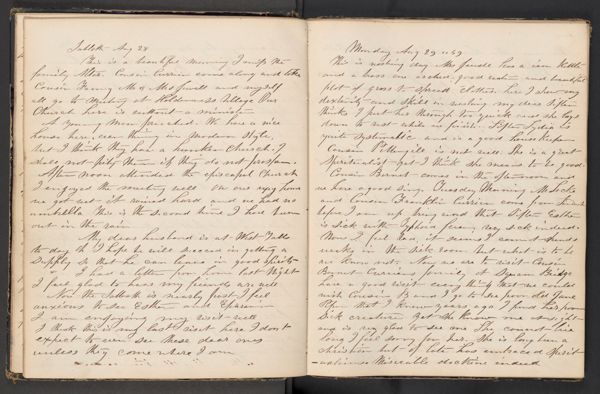 Sabbath Aug 28
This is a beautiful morning I miss the
family Altar. Cousin Currier came along and takes
Cousin Fanny Mr & Mrs and myself
all go to Meeting at Holderness Village Our
Church here is without a minister
A Young Man preached We find a nice
house here, every thing in modern style,
but I think they have a humble Church. I
shall not pity them if they do not prosper.
Afternoon attended the episcopal Church
I enjoyed the meeting well On our way home
we got wet it rained hard and we had no
umbrella This is the second time I had been
out in the rain
My dear husband is at West
to day Oh I hope he will succeed in getting a
Supply so that he can leave in good spirits
I had a letter from home last Night
I feel glad to hear my friends are well
Now the Sabbath is nearly past I feel
anxious to see Esther and Charles
I am enjoying my visit well
I think this is my last visit here I don't
expect to ever see these dear ones
unless they come where I am
Monday Aug 29 - 59
This is washing day Mrs has a iron kettle
and a boss on arched, good water and beautiful
plot of grass to spread clothes. her I show my
dexterity and skill in washing my dear Sister
thinks I put them through too quick and she lays
down to rest while we finish. Sister Lydia is
quite systematic and is a good housekeeper
Cousin Pettingill is not well. She is a great
Spiritualist yet I think she means to be good.
Cousin Burnet comes in the afternoon and
we have a good sing. Tuesday Morning
and Cousin Franklin Currier come from
before I am up bring word that Sister Esther
is sick with Typhoid fever, very sick indeed.
Now I feel sad, it seems I cannot spend
weeks in the sick room but what is to be
we know not. Now we are to visit Cousin
Currier's family at Bridge
have a good visit every thing that we could
wish Cousin B and I go to see poor old Jane
Shaw that I knew years ago I find her, poor
sick creature yet she knew me straight
and is very glad to see me She cannot live
long I feel sorry for her. She is long been a
christian but of late has embraced Spirit
ualism Miserable doctrine indeed